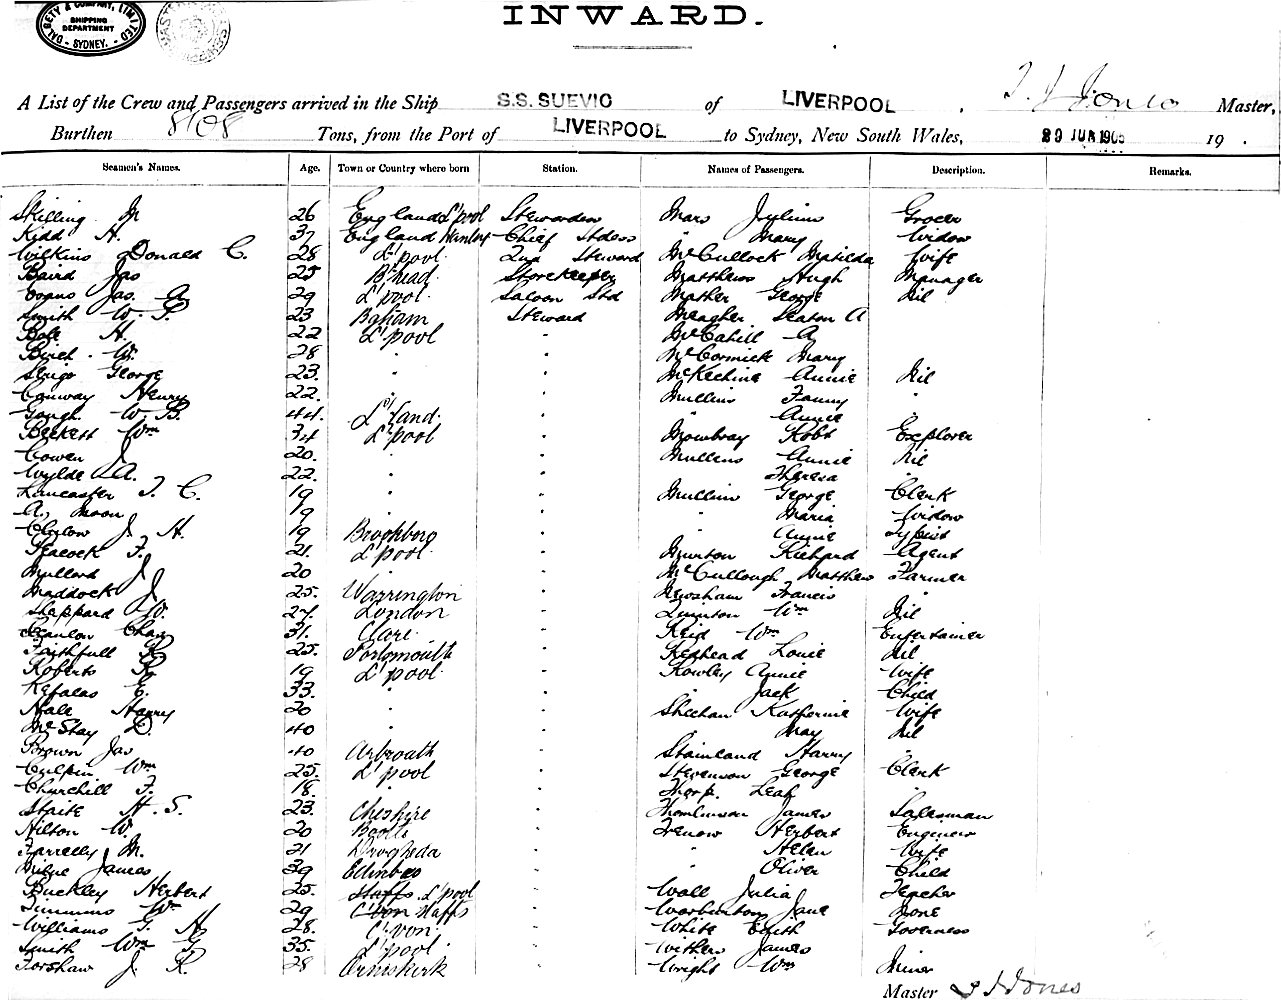 DALGETY & COMPANY, LIMITED
SHIPPING DEPARTMENT
SYDNEY.
INWARD.
A List of the Crew and Passengers arrived in the Ship S.S. SUEVIC of LIVERPOOL, T. J. Jones Master,
Burthen 8108 Tons, from the Port of LIVERPOOL to Sydney, New South Wales, 29 JUN 1905 19 .
Seamen's Names. Age. Town or Country where born Station. Names of Passengers. Description. Remarks.
Skilling M 26 England L'pool Stewardess Mars Grocer
Kidd H. 37 England Chief Stdess " Mary Widow
Wilkins Donald C. 28 L'pool 2nd Steward McCullock Matilda Wife
Baird Jas 25 B'head Storekeeper Matthews Hugh Manager
Evans Jas. A 29 L'pool Saloon Std Mather George Nil
Smith W. P. 23 Balham Steward Meagher Seaton A
H. 22 L'pool " McCahill A
Birch W. 28 " " McCormick Mary
George 23. " " McKechnie Annie Nil
Conway Henry 22. " " Mullins Fanny "
Gough W B. 44. " Annie "
Beckett Wm 34 L'pool " Mowbray Robt Explorer
Cowen J 20. " " Mullens Annie Nil
Wylde A. 22. " " Theresa
Lancaster T. C. 19 " " Mullins George Clerk
A, Moon 19 " " Maria Widow
J. H. 19 " " Annie Typist
Peacock F. 21. L'pool " Murton Richard Agent
Mullard J 20 " " McCullough Matthew Farmer
Maddock J 25. Warrington " Newsham Francis
Sheppard W. 27. London " Quinton Wm Nil
Scanlon Chas 31. Clare " Reid Wm Entertainer
Faithfull R 25. Portsmouth " Redhead Louie Nil
Roberts R. 19 L'pool " Rowley Annie Wife
Kefalas E. 33. " " " Jack Child
Hale Harry 20 " " Sheehan Katherine Wife
McStay D. 40 " " " May Nil
Brown Jas 40 Arbroath " Stainland Harry "
Culpin Wm 25. L'pool " Stevenson George Clerk
Churchill F. 18. " " Thorp. Leah
Staite H. S. 23. Cheshire " Thomlinson James Salesman
Hilton W. 20 Bootle " Trenow Herbert Engineer
Farrelly M. 21 Drogheda " " Helen Wife
Milne James 39 Edinbro " " Oliver Child
Buckley Herbert 25. Staffs L'pool " Wall Julia Teacher
Timmins Wm 29 C'von Staffs " Warburton Jane None
Williams G. H 28. C'von. " White Edith Governess
Smith Wm G. 35. L'pool " Withers James
Forshaw J. R. 28 Ormskirk " Wright Wm Miner
Master T J Jones